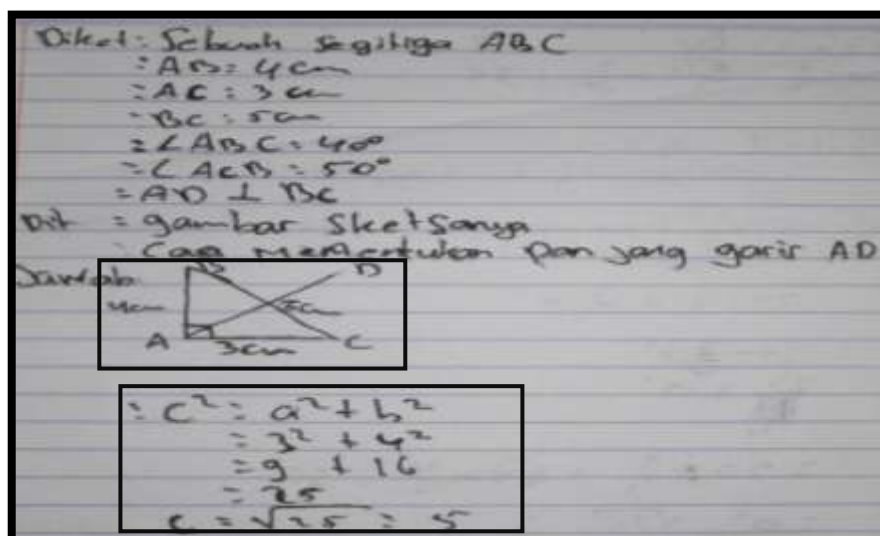 Diket: Sebuah segitiga ABC
: AB = 4 cm
= AC : 3 cm
= BC : 5 cm
= ∠ABC = 40°
= ∠ACB = 50°
= AD ⊥ BC
Dit = gambar sketsanya
: Cara menentukan panjang garis AD
Jawab:
B D
4cm 5cm
A 3cm C
: C² = a² + b²
= 3² + 4²
= 9 + 16
= 25
c = √25 = 5